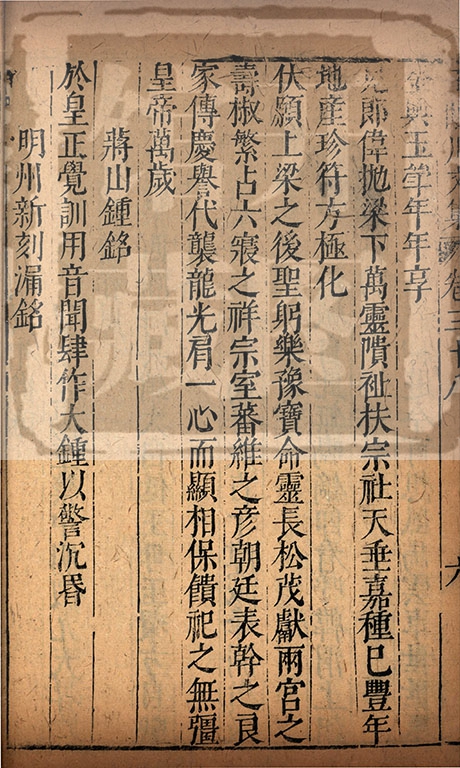 金輿玉輦年年享
兒郎偉拋梁下萬靈隤祉扶宗社天垂嘉種已豐年
地產珍符方極化
伏願上梁之後聖躬樂豫寶命靈長松茂獻兩宮之
壽椒繁占六寢之祥宗室蕃維之彥朝廷表幹之良
家傳慶譽代襲龍光肩一心而顯相保饋祀之無彊
皇帝萬歲
蔣山鍾銘
於皇正覺訓用音聞肆作大鍾以警沉昏
明州新刻漏銘